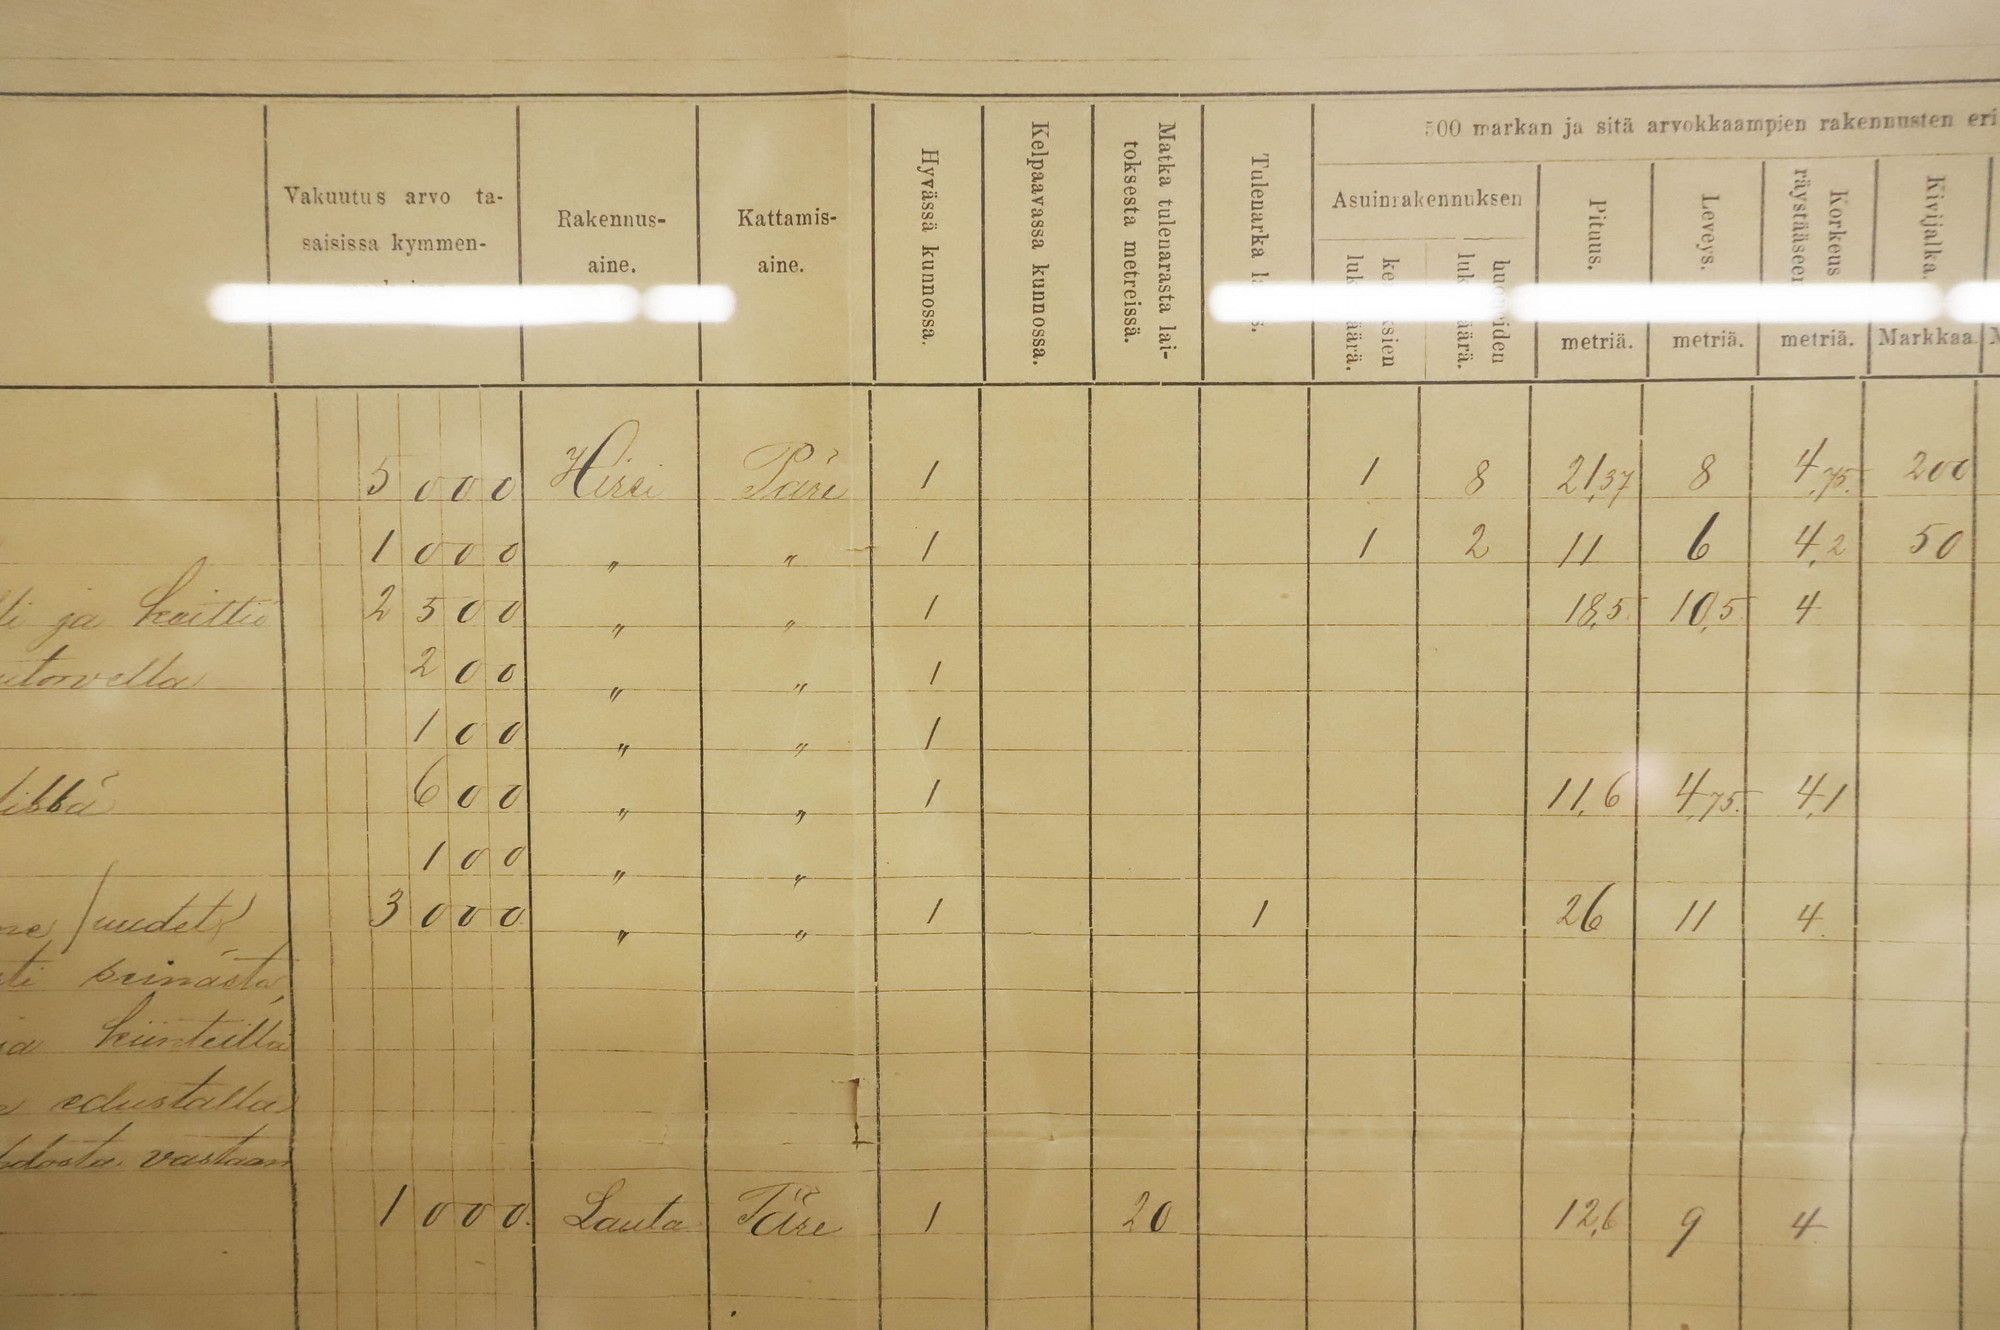 500 markan ja sitä arvokkaampien rakennusten eri
Vakuutus arvo ta-
saisissa kymmen-
Rakennus-
aine.
Kattamis-
aine.
Hyvässä kunnossa.
Kelpaavassa kunnossa.
Matka tulenarasta lai-
toksesta metreissä.
Tulenarka
Asuinrakennuksen
Pituus.
metriä.
Leveys.
metriä.
Korkeus
räystääseen
metriä.
Kivijalka.
Markkaa.
5000 Hirsi Päre 1 1 8 21,37 8 4,75. 200
1000 „ „ 1 1 2 11 6 4,2 50
ja keittiö 2500 „ „ 1 18,5. 10,5. 4
200 „ „ 1
100 „ „ 1
600 „ „ 1 11,6 4,75. 4,1
100 „ „
(uudet) 3000 „ „ 1 1 26 11 4.
seinästä,
kiinteillä
edustalla
vastaan
1000. Lauta Päre 1 20 12,6 9 4